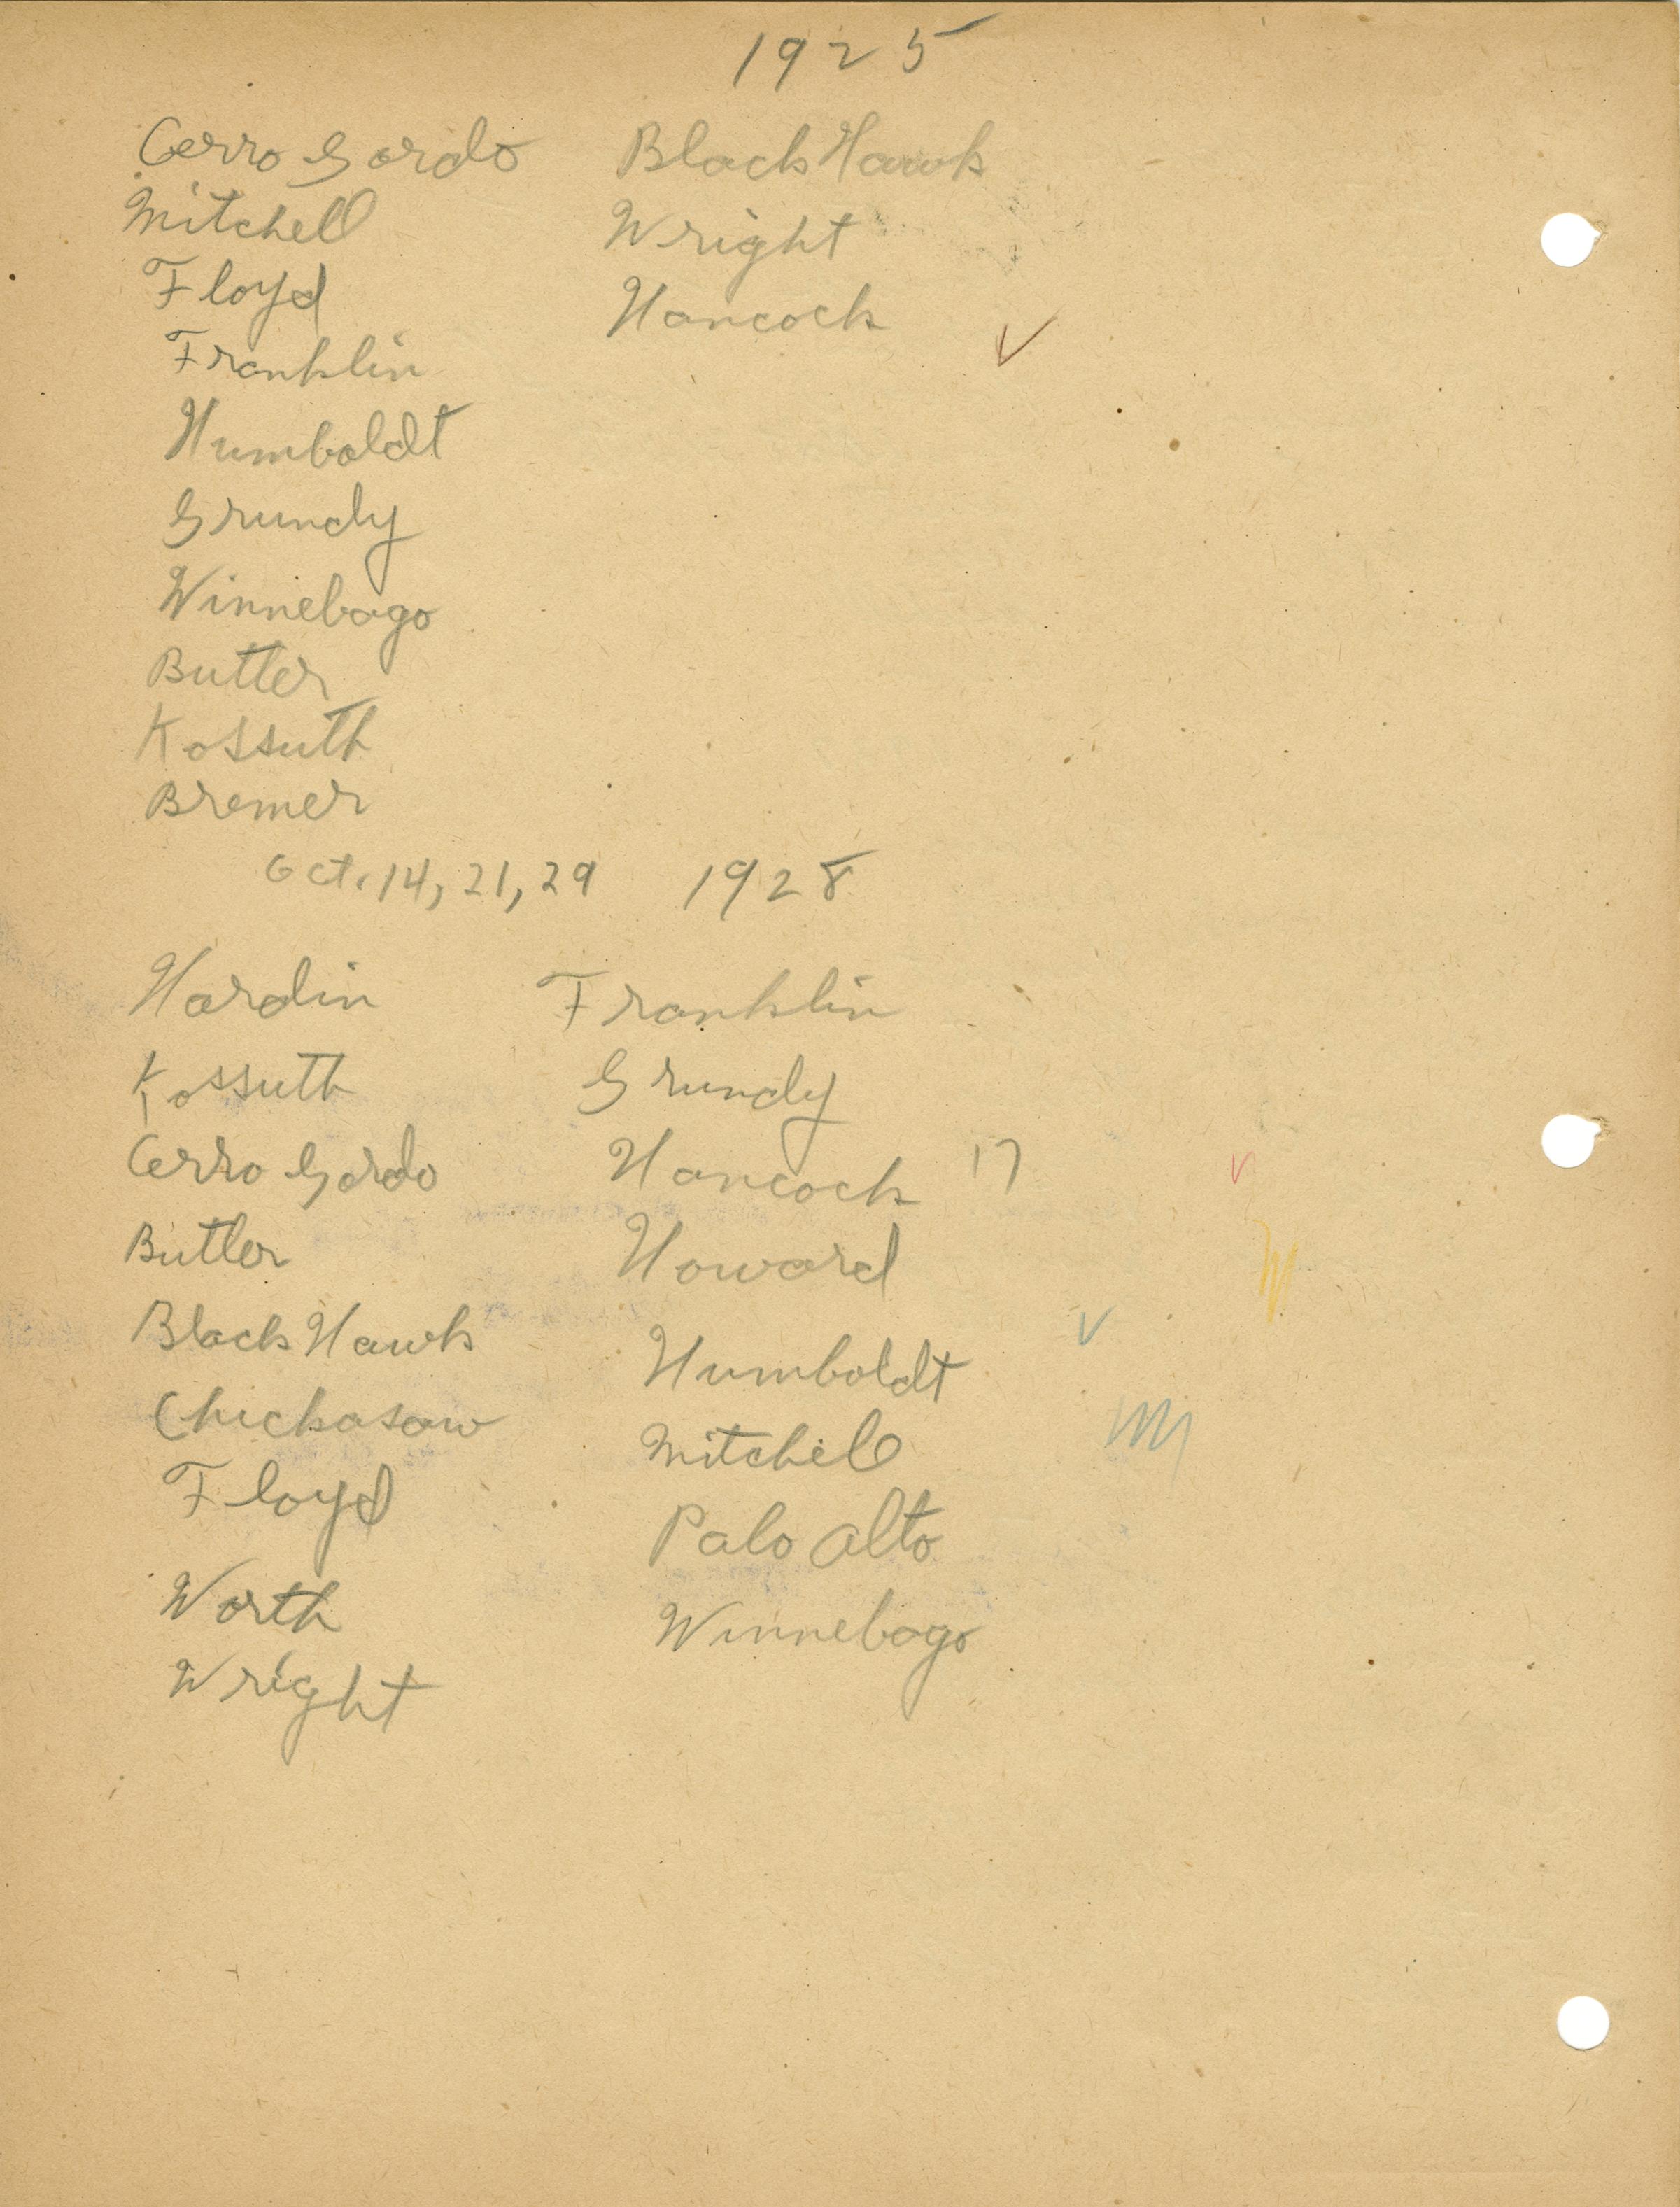 1925
Cerro Gordo
Mitchell
Floyd
Franklin
Humboldt
Grundy
Winnebago
Butler
Kossuth
Bremer
Black Hawk
Wright
Hancock
Oct. 14, 21, 29 1928
Hardin
Kossuth
Cerro Gordo
Butler
Black Hawk
Chickasaw
Floyd
Worth
Wright
Franklin
Grundy
Hancock 17
Howard
Humboldt
Mitchell
Palo Alto
Winnebago